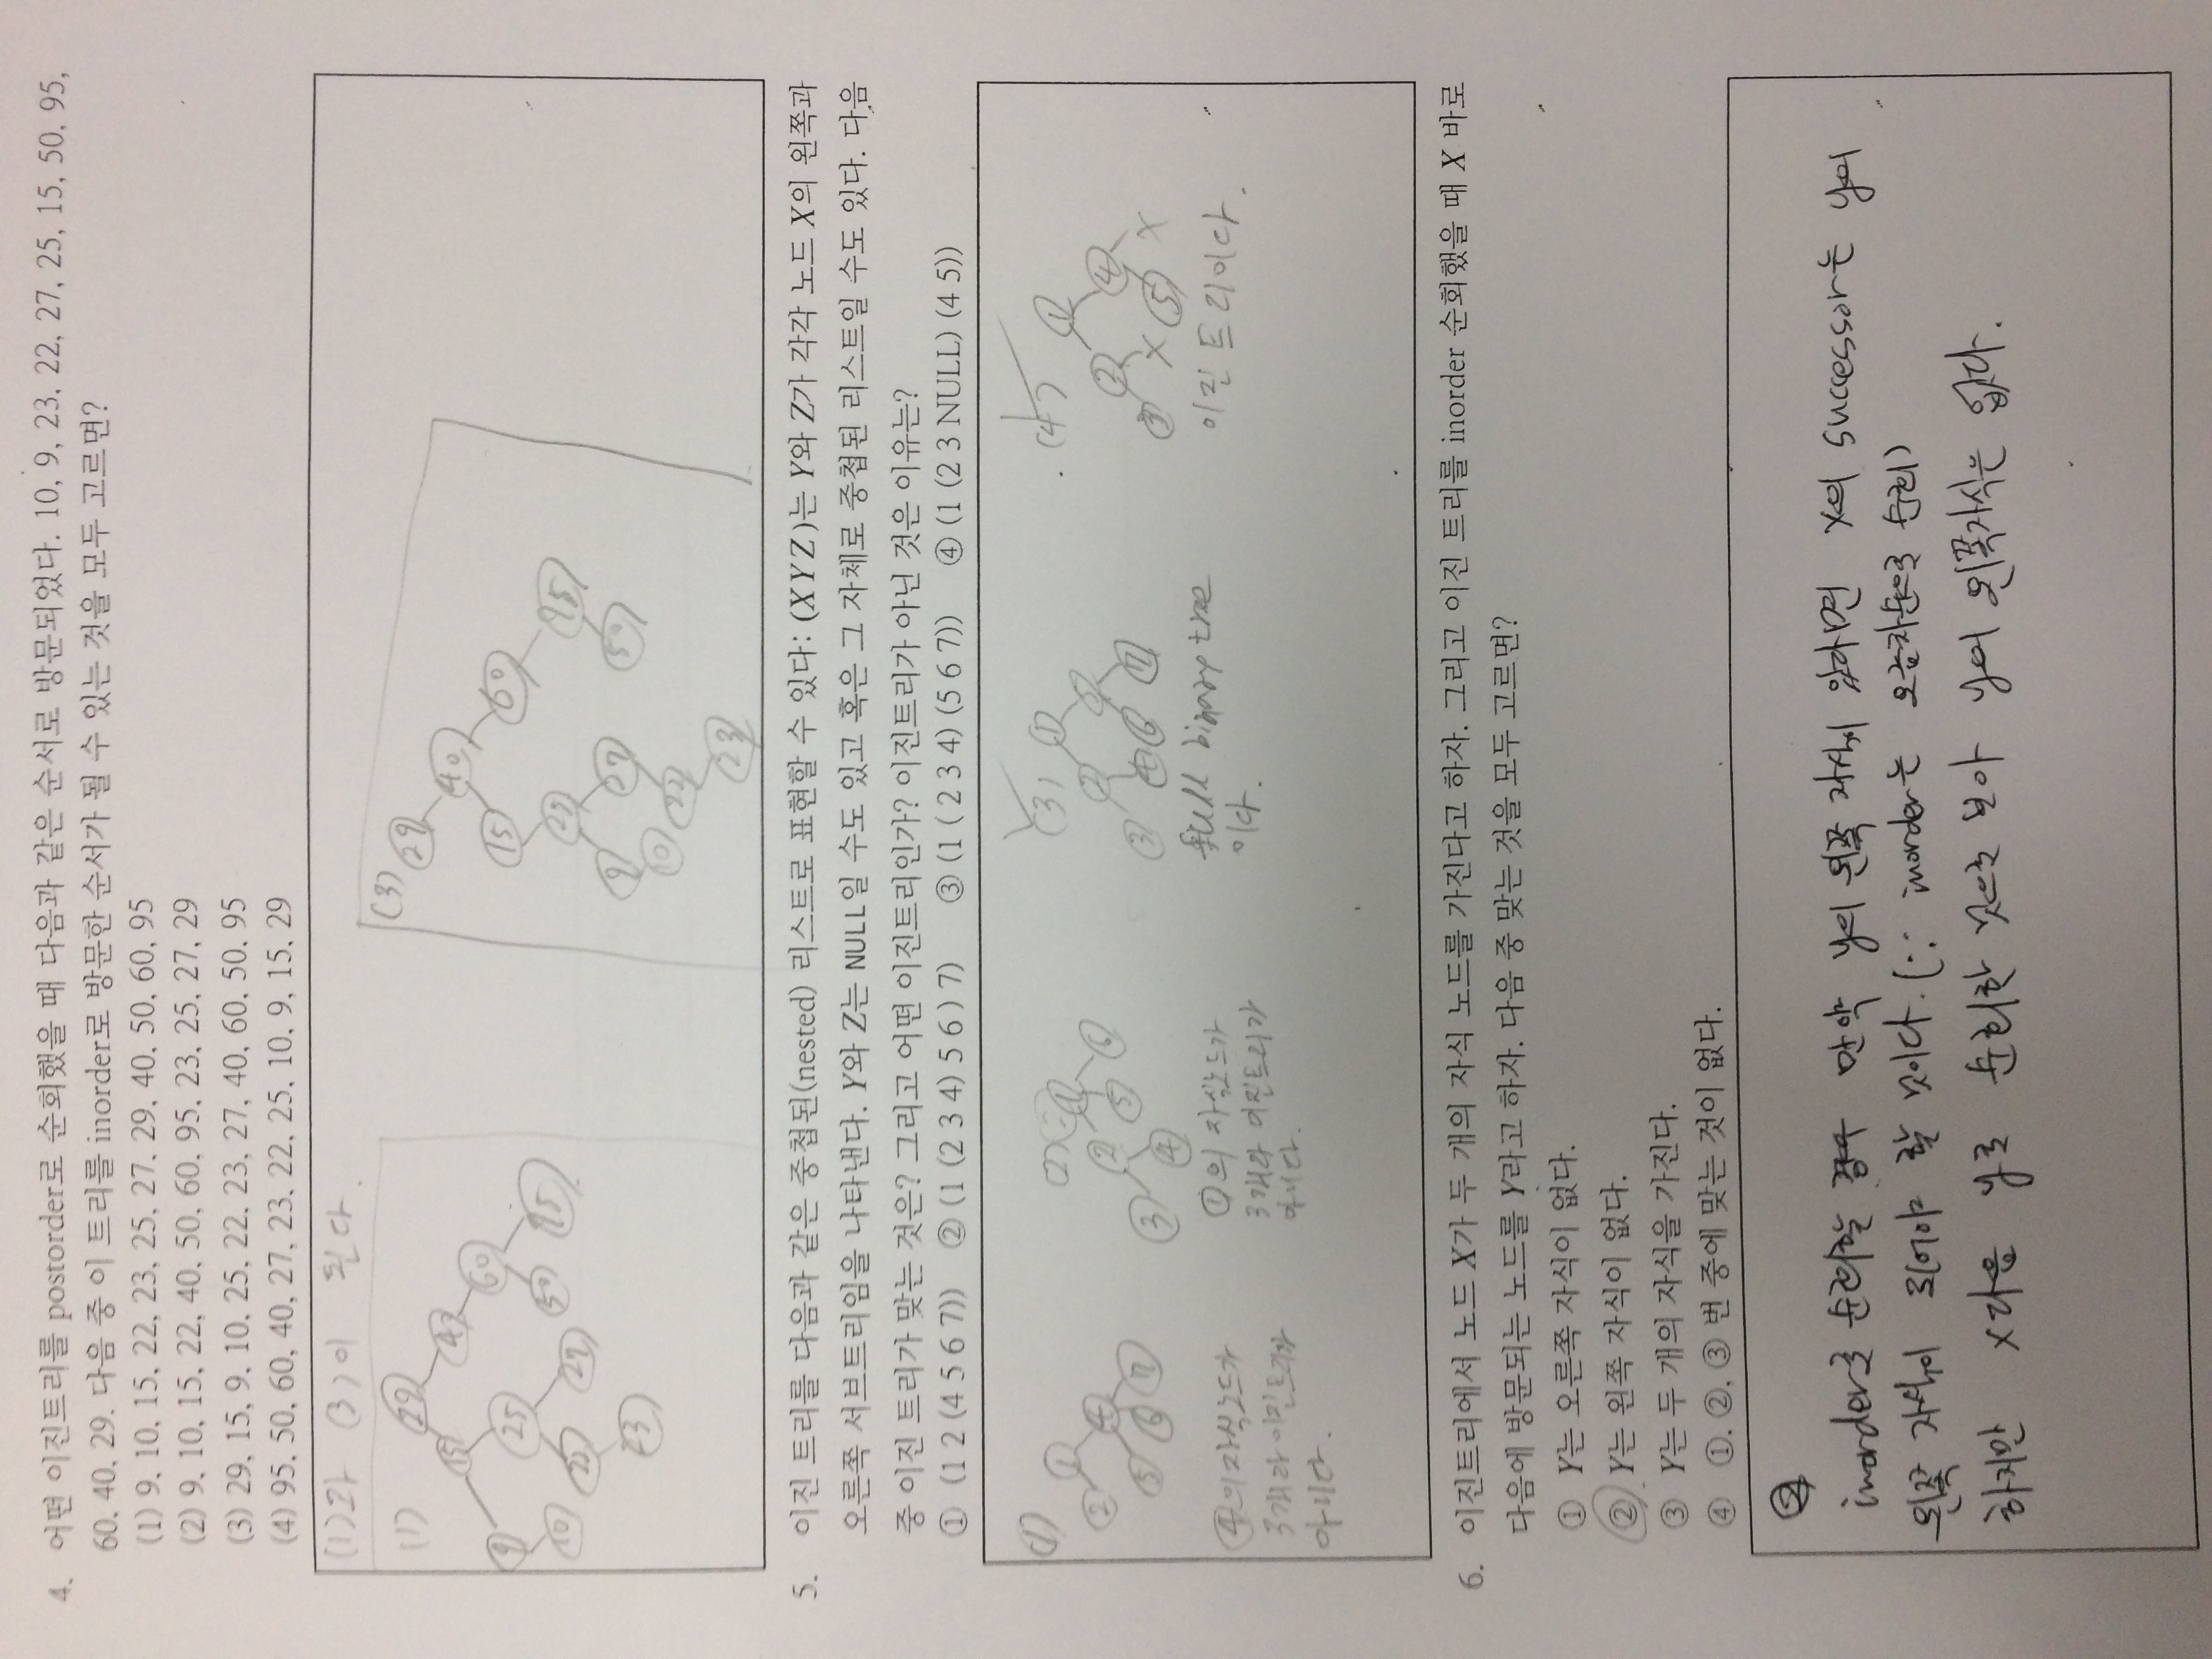 4. 어떤 이진트리를 postorder로 순회했을 때 다음과 같은 순서로 방문되었다. 10, 9, 23, 22, 27, 25, 15, 50, 95,
60, 40, 29. 다음 중 이 트리를 inorder로 방문한 순서가 될 수 있는 것을 모두 고르면?
(1) 9, 10, 15, 22, 23, 25, 27, 29, 40, 50, 60, 95
(2) 9, 10, 15, 22, 40, 50, 60, 95, 23, 25, 27, 29
(3) 29, 15, 9, 10, 25, 22, 23, 27, 40, 60, 50, 95
(4) 95, 50, 60, 40, 27, 23, 22, 25, 10, 9, 15, 29
(1)과 (3)이 된다.
(1) 29
15 40
9 25 60
10 22 50 95
(3) 29
40
15 60
25 95
9 27 50
10 22
23
5. 이진 트리를 다음과 같은 중첩된(nested) 리스트로 표현할 수 있다: (X Y Z)는 Y와 Z가 각각 노드 X의 왼쪽과
오른쪽 서브트리임을 나타낸다. Y와 Z는 NULL일 수도 있고 혹은 그 자체로 중첩된 리스트일 수도 있다. 다음
중 이진 트리가 맞는 것은? 그리고 어떤 이진트리인가? 이진트리가 아닌 것은 이유는?
① (1 2 (4 5 6 7)) ② (1 (2 3 4) 5 6 ) 7) ③ (1 ( 2 3 4) (5 6 7)) ④ (1 (2 3 NULL) (4 5))
(1) (2) (3) (4)
1 1 1 1
2 4 2 5 6 2 5 2 4
5 6 7 3 4 3 4 6 7 3 X 5 X
④의 자식노드가
3개라 이진트리가
아니다.
①의 자식노드가
3개라 이진트리가
아니다.
full binary tree
이다.
이진 트리이다.
6. 이진트리에서 노드 X가 두 개의 자식 노드를 가진다고 하자. 그리고 이진 트리를 inorder 순회했을 때 X 바로
다음에 방문되는 노드를 Y라고 하자. 다음 중 맞는 것을 모두 고르면?
① Y는 오른쪽 자식이 없다.
② Y는 왼쪽 자식이 없다.
③ Y는 두 개의 자식을 가진다.
④ ①, ②, ③ 번 중에 맞는 것이 없다.
②
inorder로 순회할 경우 만약 y의 왼쪽 자식이 있다면 x의 successor는 y의
왼쪽 자식이 되어야 할 것이다. (∵ inorder는 오름차순으로 순회)
하지만 x다음 y로 순회한 것으로 보아 y의 왼쪽자식은 없다.